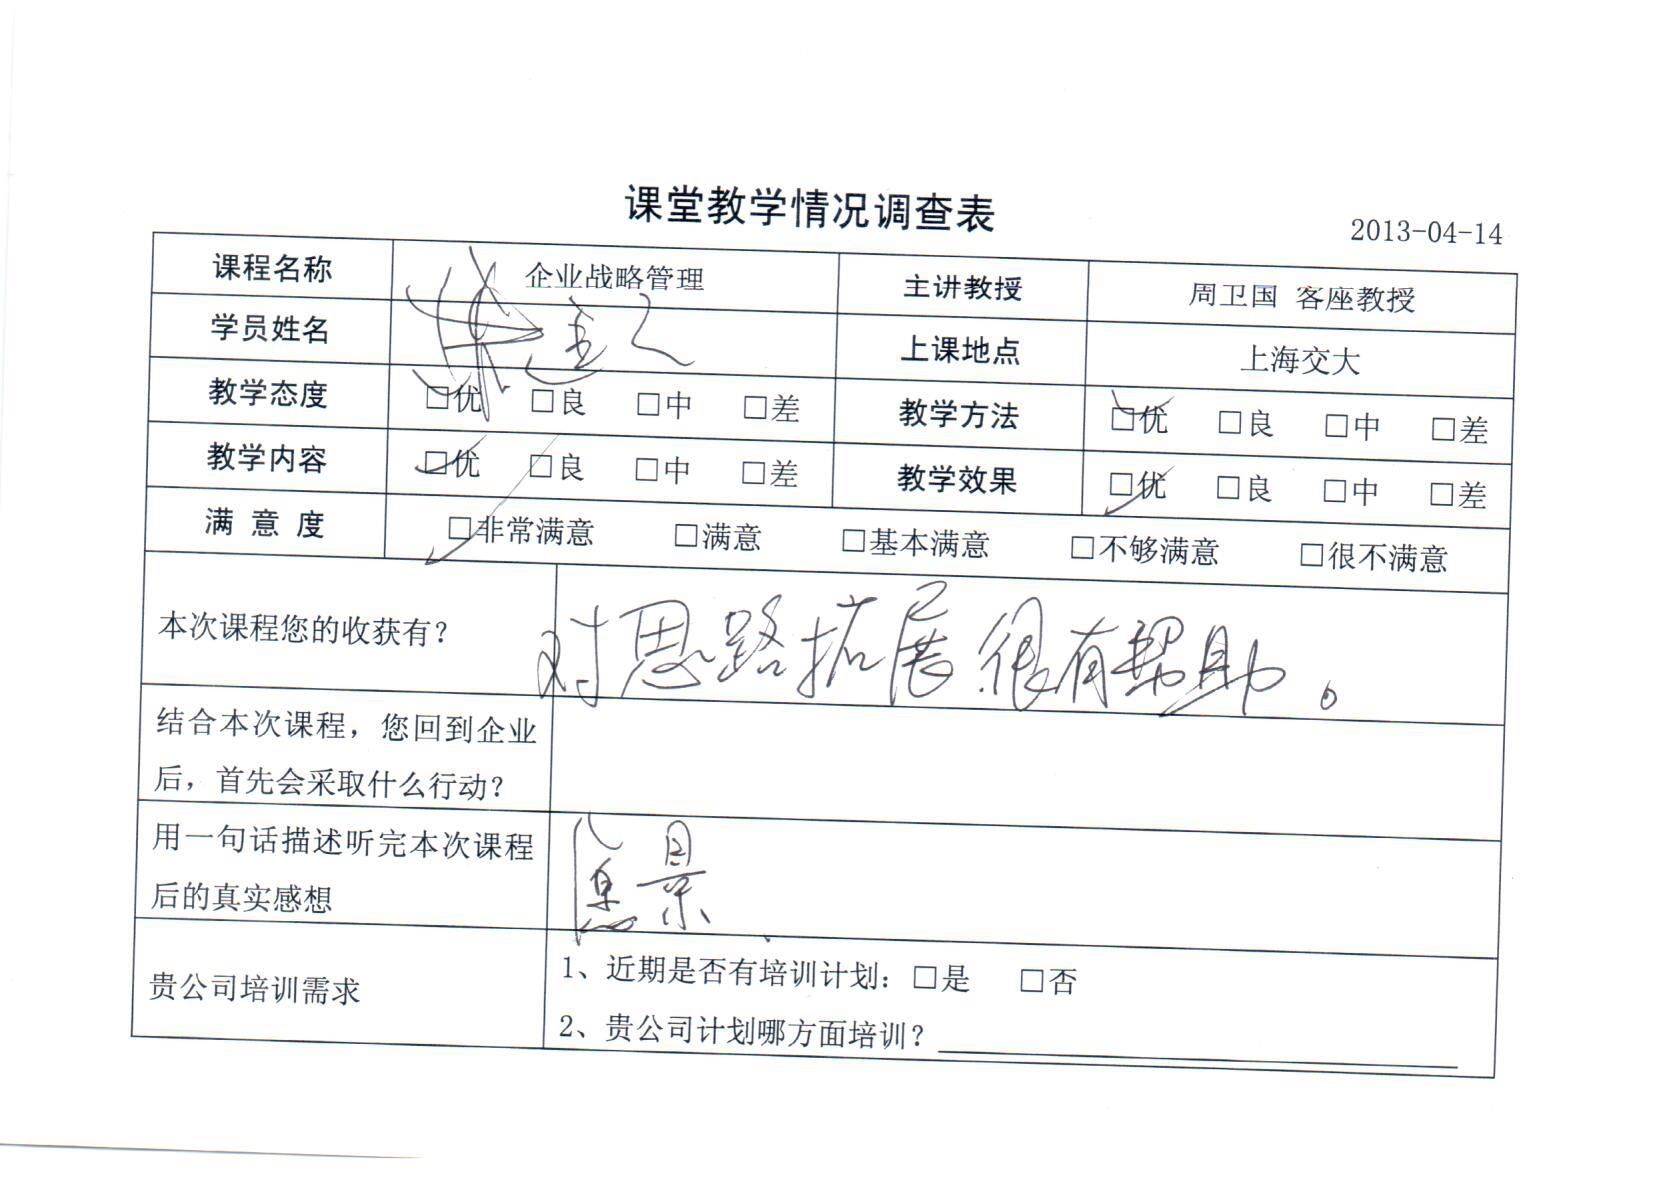 课堂教学情况调查表
2013-04-14
课程名称 企业战略管理 主讲教授 周卫国 客座教授
学员姓名 上课地点 上海交大
教学态度 □优 □良 □中 □差 教学方法 □优 □良 □中 □差
教学内容 □优 □良 □中 □差 教学效果 □优 □良 □中 □差
满意度 □非常满意 □满意 □基本满意 □不够满意 □很不满意
本次课程您的收获有? 对思路拓展很有帮助。
结合本次课程，您回到企业
后，首先会采取什么行动?
用一句话描述听完本次课程
后的真实感想
贵公司培训需求
1、近期是否有培训计划: □是 □否
2、贵公司计划哪方面培训?